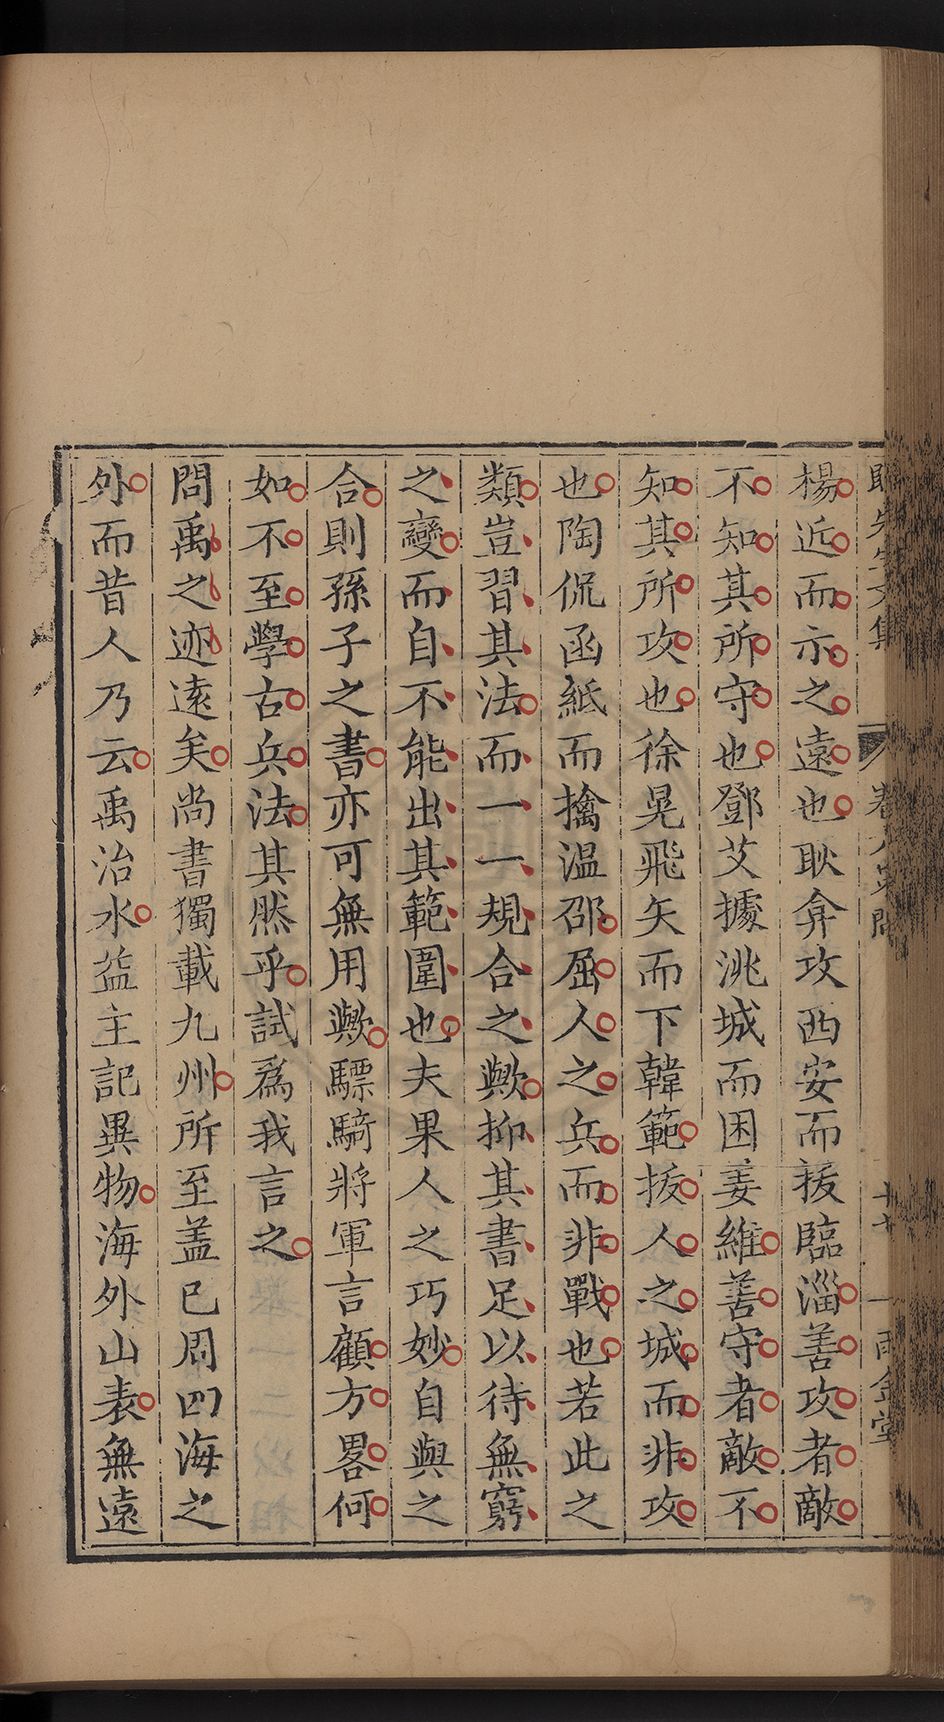 楊近而示之遠也耿弇攻西安而拔臨淄善攻者敵
不知其所守也鄧艾據洮城而困姜維善守者敵不
知其所攻也徐晃飛矢而下韓範拔人之城而非攻
也陶侃函紙而擒溫邵屈人之兵而非戰也若此之
類豈習其法而一一規合之歟抑其書足以待無窮
之變而自不能出其範圍也夫果人之巧妙自與之
合則孫子之書亦可無用歟驃騎將軍言顧方畧何
如不至學古兵法其然乎試爲我言之
問禹之迹遠矣尚書獨載九州所至盖已周四海之
外而昔人乃云禹治水益主記異物海外山表無遠